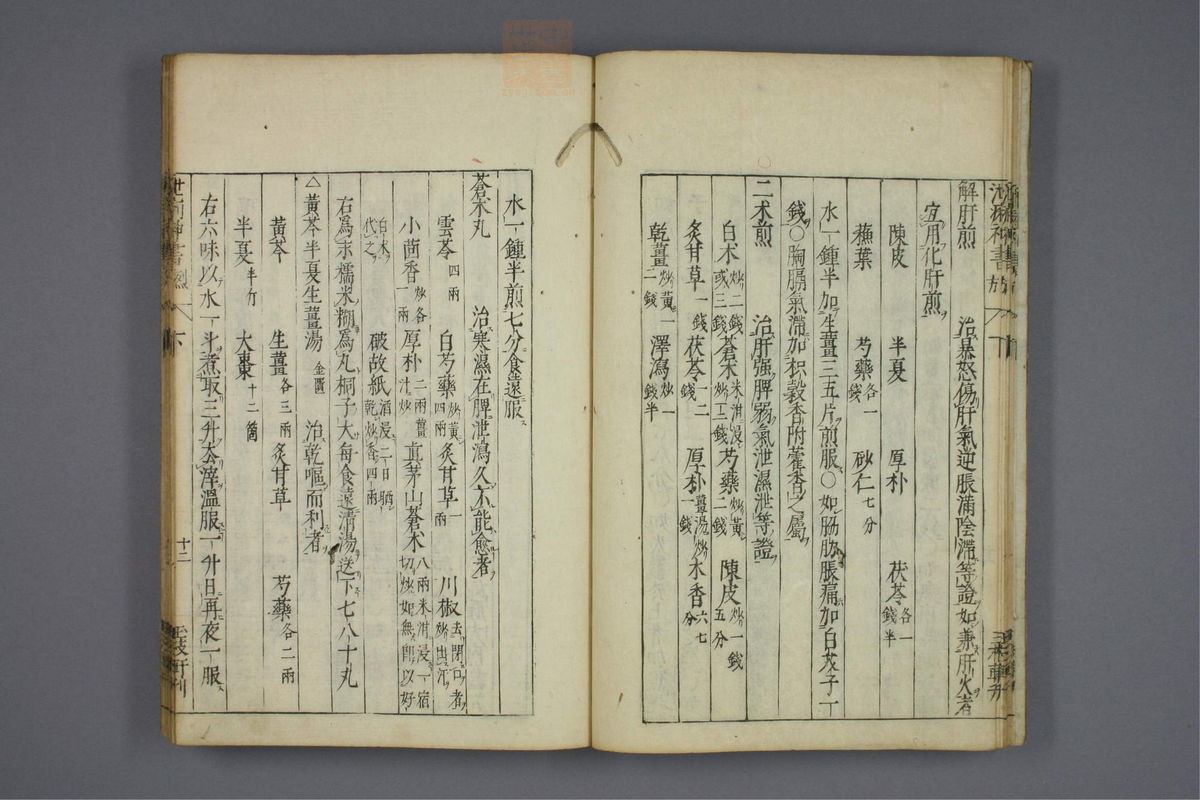 解肝煎　治暴怒傷肝氣逆脹滿陰滯等證如兼肝火者
宜用化肝煎
陳皮　半夏　厚朴　茯苓各一錢半
蘓葉　芍藥各一錢　砂仁七分
水一鍾半加生薑三五片煎服〇如胁肋脹痛加白芥子一
錢〇胸膈氣滯加枳殼香附藿香之屬
二术煎　治肝强脾弱氣泄濕泄等證
白术炒二錢或三錢　蒼术米泔浸炒一二錢　芍藥炒黃二錢　陳皮炒一錢五分
炙甘草一錢　茯苓一二錢　厚朴薑湯炒一錢　木香六七分
乾薑炒黃一二錢　澤瀉炒一錢半
水一鍾半煎七分食遠服
蒼术丸　治寒濕在脾泄瀉久不能愈者
雲苓四兩　白芍藥炒黃四兩　炙甘草一兩　川椒去閉口者炒出汗
小茴香炒各一兩　厚朴二兩薑汁炒　真茅山蒼术八兩米泔浸一宿切炒如無即以好
白术代之　破故紙酒浸二日晒乾炒香四兩
右爲末糯米糊爲丸桐子大每食遠清湯送下七八十丸
△黃芩半夏生薑湯金匱　治乾嘔而利者
黃芩　生薑各三兩　炙甘草　芍藥各二兩
半夏半斤　大棗十二箇
右六味以水一斗煮取三升去滓溫服一升日再夜一服
十二